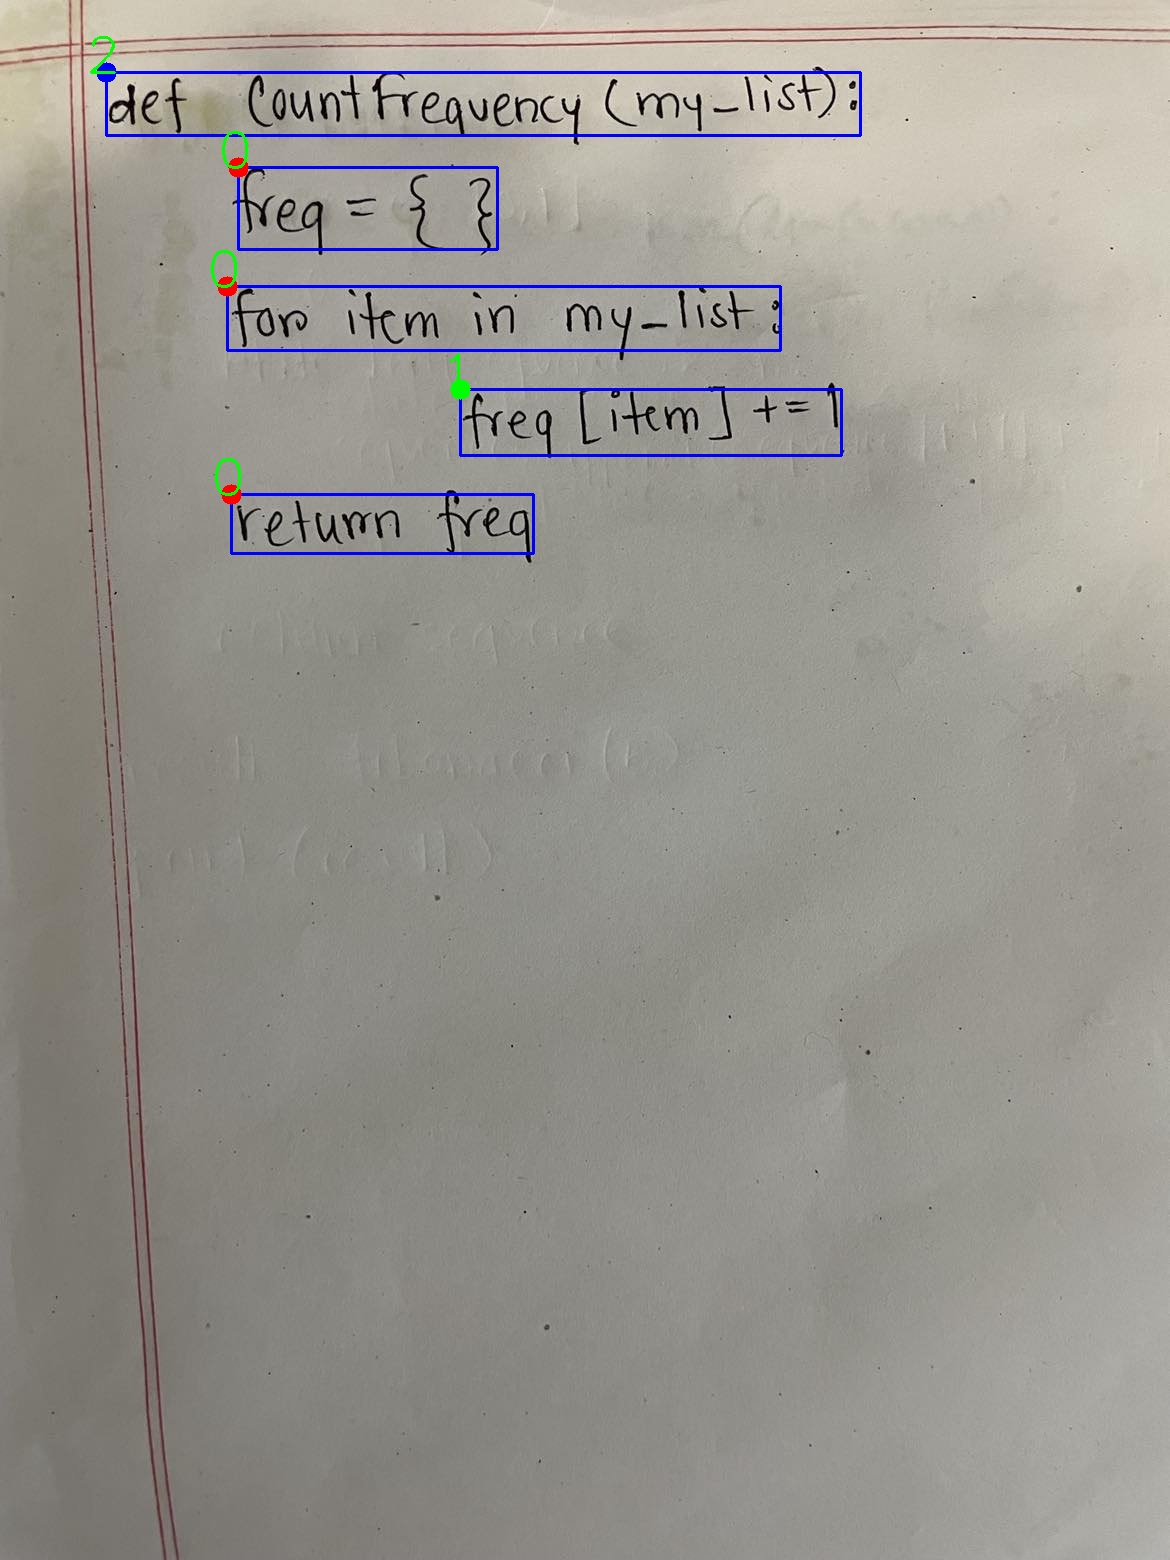 2
def CountFrequency (my_list):
0
freq = { }
0
for item in my_list:
1
freq [item] += 1
0
return freq